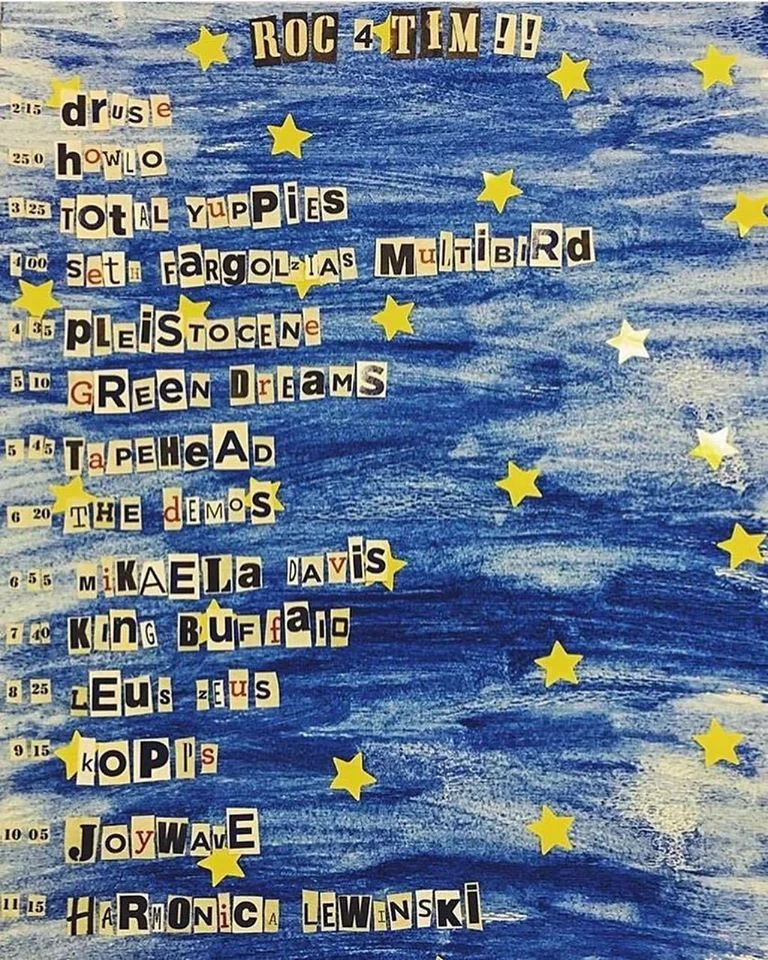 ROC 4 TIM!!
2 15 druse
25 0 hOWLO
3 25 TOtAL YuPPiES
4 00 SetH FARgOLzIAS MulTiBIRd
4 35 PLEiSTOCENe
5 10 GREeN DrEamS
5 45 TaPEHeAD
6 20 THE dEMoS
6 55 MiKAELa DAViS
7 40 KInG BuFfalO
8 25 LEus zEuS
9 15 kOPPs
10 05 JoyWAvE
11 15 HARMONiCA LEWINSKi